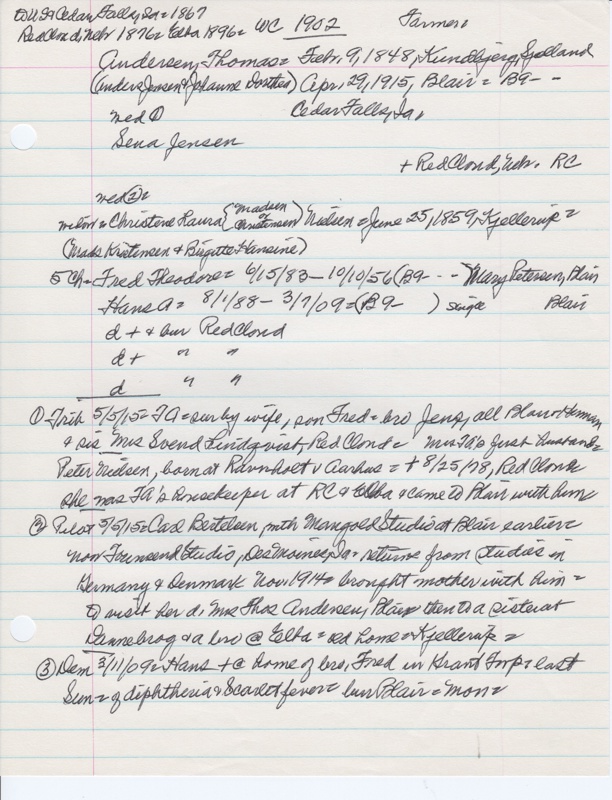 to U.S. Cedar Falls, Ia = 1867
Red Cloud, Nebr 1876 = Elba 1896 = WC 1902 Farmer
Andersen, Thomas = Febr. 9, 1848, Kundbjerg, Sjelland
(Anders Jensen & Johanne Dorthea) Apr. 29, 1915, Blair = B9- -
med ① Cedar Falls, Ia,
Sena Jensen
+ Red Cloud, Nebr. RC
med ② =
Christine Laura (Madsen or Christensen) Nielsen = June 25, 1859, Kjellerup =
(Mads Kristensen & Birgitte Hansine)
5 Ch = Fred Theodore = 6/15/83 – 10/10/56 (B9- - - Mary Petersen, Blair
Hans A = 8/1/88 – 3/7/09 = (B9- ) single Blair
d + & bur Red Cloud
d + " "
d " "
① Trib 5/5/15 = TA = sur by wife, son Fred = bro Jens, all Blair + Herman
& sis Mrs Svend Lindqvist, Red Cloud = Mrs TA's first husband =
Peter Nielsen, born at Ravnholt v Aarhus = + 8/25/78, Red Cloud
she was TA's housekeeper at RC & Elba & came to Blair with him
② Pilot 5/5/15 = Carl Bertelsen, with Mangold Studio at Blair earlier =
now Townsend Studio, Des Moines, Ia = returns from studies in
Germany & Denmark Nov. 1914 = brought mother with him =
to visit her d, Mrs Thos Andersen, Blair then to a sister at
Dannebrog & a bro @ Elba = old home = Kjellerup =
③ Dem 3/11/09 = Hans + @ home of bro, Fred in Grant Twp = last
Sun = of diphtheria & Scarlet fever = bur Blair = Mon =